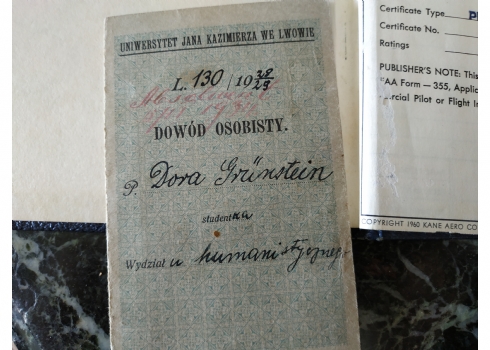 UNIWERSYTET JANA KAZIMIERZA WE LWOWIE
L. 130/19 28/29
DOWÓD OSOBISTY.
P. Dora Grünstein
studentka
Wydział u humanistycznego
Certificate Type
Certificate No.
Ratings
PUBLISHER'S NOTE: This
AA Form — 355, Applic
ercial Pilot or Flight In
COPYRIGHT 1960 KANE AERO CO